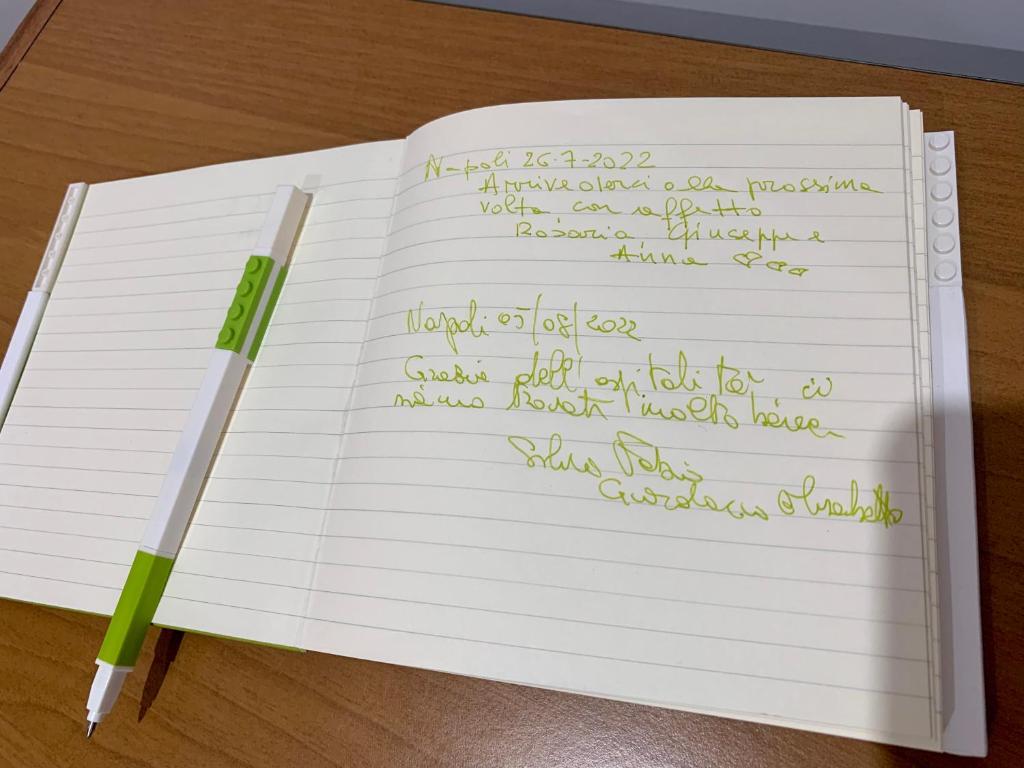 Napoli 26-7-2022
Arrivederci alla prossima
volta, con affetto
Rosaria, Giuseppe
Anna
Napoli 05/08/2022
Grazie dell'ospitalità ci
siamo trovati molto bene
Fabio
Elisabetta